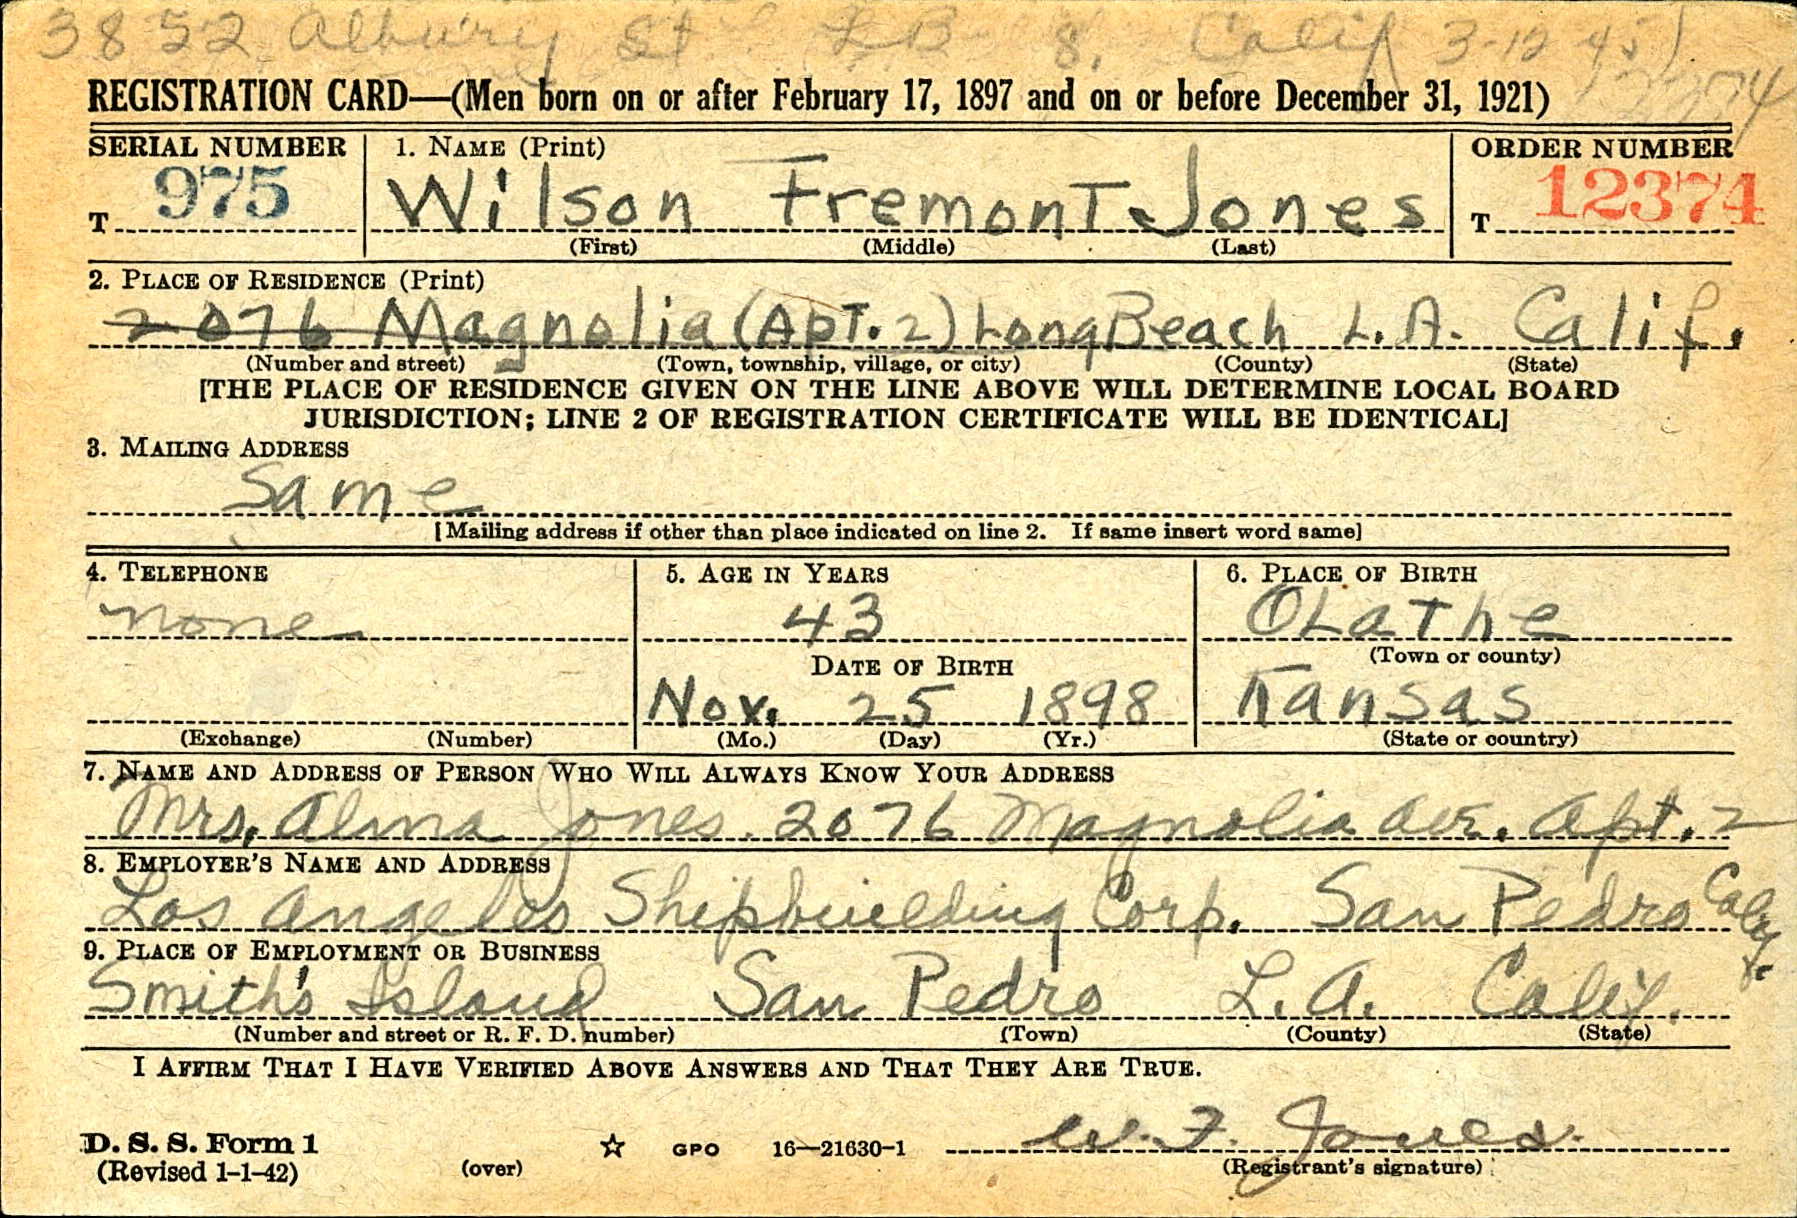 3852 Albury St L.B. 8, Calif 3-12-45
REGISTRATION CARD—(Men born on or after February 17, 1897 and on or before December 31, 1921)
SERIAL NUMBER
1. NAME (Print)
ORDER NUMBER
T 975
Wilson Fremont Jones
T 12374
(First) (Middle) (Last)
2. PLACE OF RESIDENCE (Print)
2076 Magnolia (Apt. 2) Long Beach L.A. Calif.
(Number and street) (Town, township, village, or city) (County) (State)
[THE PLACE OF RESIDENCE GIVEN ON THE LINE ABOVE WILL DETERMINE LOCAL BOARD
JURISDICTION; LINE 2 OF REGISTRATION CERTIFICATE WILL BE IDENTICAL]
3. MAILING ADDRESS
Same
[Mailing address if other than place indicated on line 2. If same insert word same]
4. TELEPHONE
none
(Exchange) (Number)
5. AGE IN YEARS
43
DATE OF BIRTH
Nov. 25 1898
(Mo.) (Day) (Yr.)
6. PLACE OF BIRTH
OLathe
(Town or county)
Kansas
(State or country)
7. NAME AND ADDRESS OF PERSON WHO WILL ALWAYS KNOW YOUR ADDRESS
Mrs. Alma Jones. 2076 Magnolia Ave. Apt. 2
8. EMPLOYER'S NAME AND ADDRESS
Los Angeles Shipbuilding Corp. San Pedro Calif.
9. PLACE OF EMPLOYMENT OR BUSINESS
Smith's Island San Pedro L.A. Calif.
(Number and street or R. F. D. number) (Town) (County) (State)
I AFFIRM THAT I HAVE VERIFIED ABOVE ANSWERS AND THAT THEY ARE TRUE.
D. S. S. Form 1
(Revised 1-1-42)
(over)
GPO 16—21630-1
W. F. Jones.
(Registrant's signature)